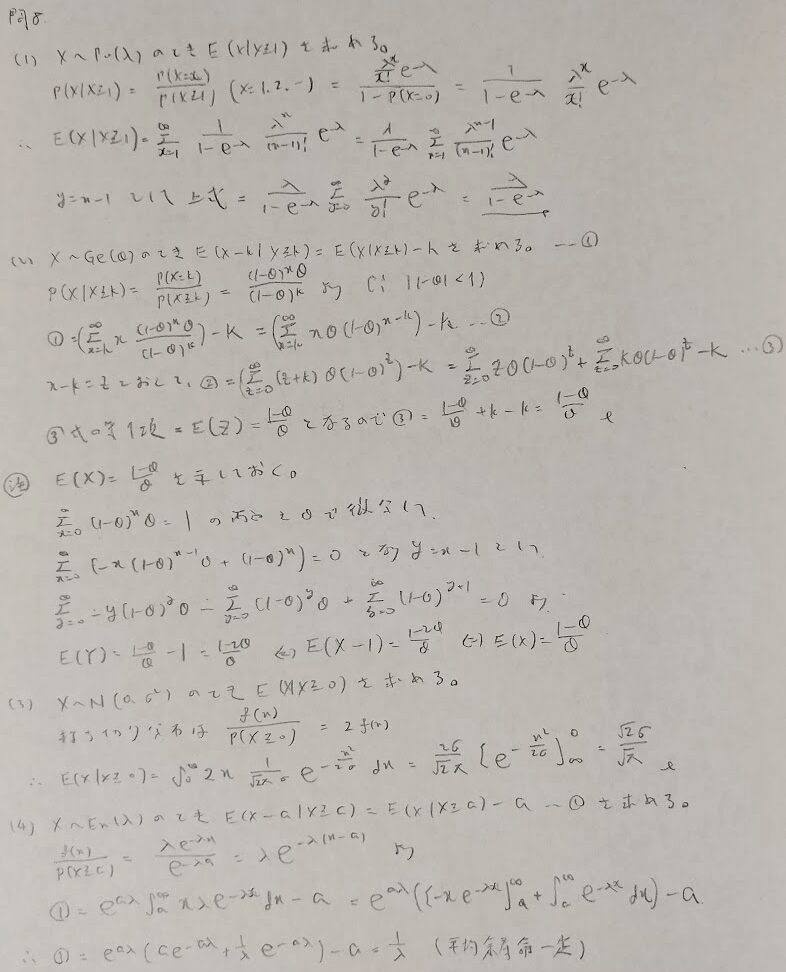 問8
(1) X~Po(λ) のとき E(X|X≥1) を求める。
P(X|X≥1) = P(X=x)/P(X≥1) (x=1.2.-) = (λ^x/x! e^-λ)/(1-P(X=0)) = 1/(1-e^-λ) λ^x/x! e^-λ
∴ E(X|X≥1) = Σ_{x=1}^∞ 1/(1-e^-λ) λ^x/(x-1)! e^-λ = λ/(1-e^-λ) Σ_{x=1}^∞ λ^{x-1}/(x-1)! e^-λ
y=x-1 として 上式 = λ/(1-e^-λ) Σ_{y=0}^∞ λ^y/y! e^-λ = λ/(1-e^-λ)
(2) X~Ge(θ) のとき E(X-k|X≥k) = E(X|X≥k)-k を求める。 --- ①
P(X|X≥k) = P(X=k)/P(X≥k) = (1-θ)^x θ/(1-θ)^k より (∵ |1-θ|<1)
① = (Σ_{x=k}^∞ x (1-θ)^x θ/(1-θ)^k) - k = (Σ_{x=k}^∞ xθ(1-θ)^{x-k}) - k ... ②
x-k=z とおくと、② = (Σ_{z=0}^∞ (z+k) θ(1-θ)^z) - k = Σ_{z=0}^∞ zθ(1-θ)^z + Σ_{z=0}^∞ kθ(1-θ)^z - k ... ③
③式の第1項 = E(Z) = (1-θ)/θ となるので ③ = (1-θ)/θ + k - k = (1-θ)/θ
注 E(X) = (1-θ)/θ を示しておく。
Σ_{x=0}^∞ (1-θ)^x θ = 1 の両辺を θ で微分して、
Σ_{x=0}^∞ {-x(1-θ)^{x-1} θ + (1-θ)^x} = 0 となり y=x-1 として
Σ_{y=0}^∞ -y(1-θ)^y θ - Σ_{y=0}^∞ (1-θ)^y θ + Σ_{y=0}^∞ (1-θ)^{y+1} = 0 より、
E(Y) = (1-θ)/θ - 1 = (1-2θ)/θ ⇔ E(X-1) = (1-2θ)/θ ⇔ E(X) = (1-θ)/θ
(3) X~N(0,σ²) のとき E(X|X≥0) を求める。
f(x)/P(X≥0) = 2f(x)
∴ E(X|X≥0) = ∫_0^∞ 2x 1/(√2π σ) e^{-x²/2σ} dx = 2σ/√2π [e^{-x²/2σ}]_∞^0 = √2σ/√π
(4) X~Ex(λ) のとき E(X-a|X≥a) = E(X|X≥a) - a --- ① を求める。
f(x)/P(X≥a) = λe^{-λx}/e^{-λa} = λe^{-λ(x-a)} より
① = e^{aλ} ∫_a^∞ xλe^{-λx} dx - a = e^{aλ} ({-xe^{-λx}]_a^∞ + ∫_a^∞ e^{-λx} dx) - a
∴ ① = e^{aλ} (ae^{-aλ} + 1/λ e^{-aλ}) - a = 1/λ (平均余寿命一定)